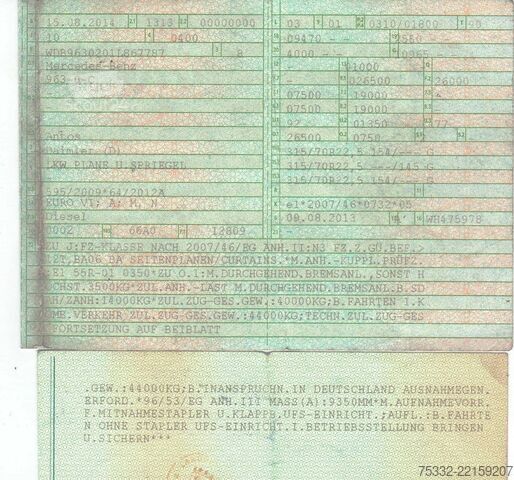 15.08.2014 1313 00000000 03 01 0310/01800 90
10 0400 09470 -- 980 -
WDB9630201L867787 8 4000 -- 0365-
Mercedes-Benz - 1000 --
963-0-C - 026500 26000
- 07500 19000 -
07500 19000 -
92 01350 77
Antos 26500 0750
Daimler (D) 315/70R22,5 154/--- G
LKW PLANE U.SPRIEGEL 315/70R22,5 ---/145 G
315/70R22,5 154/--- G
595/2009*64/2012A -
EURO VI; A; M, N e1*2007/46*0732*05
Diesel 09.08.2013 WH475978
0002 66A0 12809 -
ZU J:FZ-KLASSE NACH 2007/46/EG ANH.II:N3 FZ.Z.GÜ.BEF.>
BA06 DA SEITENPLANEN/CURTAINS.*M.ANH.-KUPPL.PRÜFZ.
:E1 55R-01 0350*ZU O.1:M.DURCHGEHEND.BREMSANL.,SONST H
ÖCHST.3500KG*ZUL.ANH.-LAST M.DURCHGEHEND.BREMSANL.B.SD
AH/ZANH:14000KG*ZUL.ZUG-GES.GEW.:40000KG;B.FAHRTEN I.K
OMB.VERKEHR ZUL.ZUG-GES.GEW.:44000KG;TECHN.ZUL.ZUG-GES
FORTSETZUNG AUF BEIBLATT
.GEW.:44000KG;B.INANSPRUCHN.IN DEUTSCHLAND AUSNAHMEGEN.
ERFORD.*96/53/EG ANH.III MASS(A):9350MM*M.AUFNAHMEVORR.
F.MITNAHMESTAPLER U.KLAPPB.UFS-EINRICHT.;AUFL.:B.FAHRTE
N OHNE STAPLER UFS-EINRICHT.I.BETRIEBSSTELLUNG BRINGEN
U.SICHERN***
75332-22159207